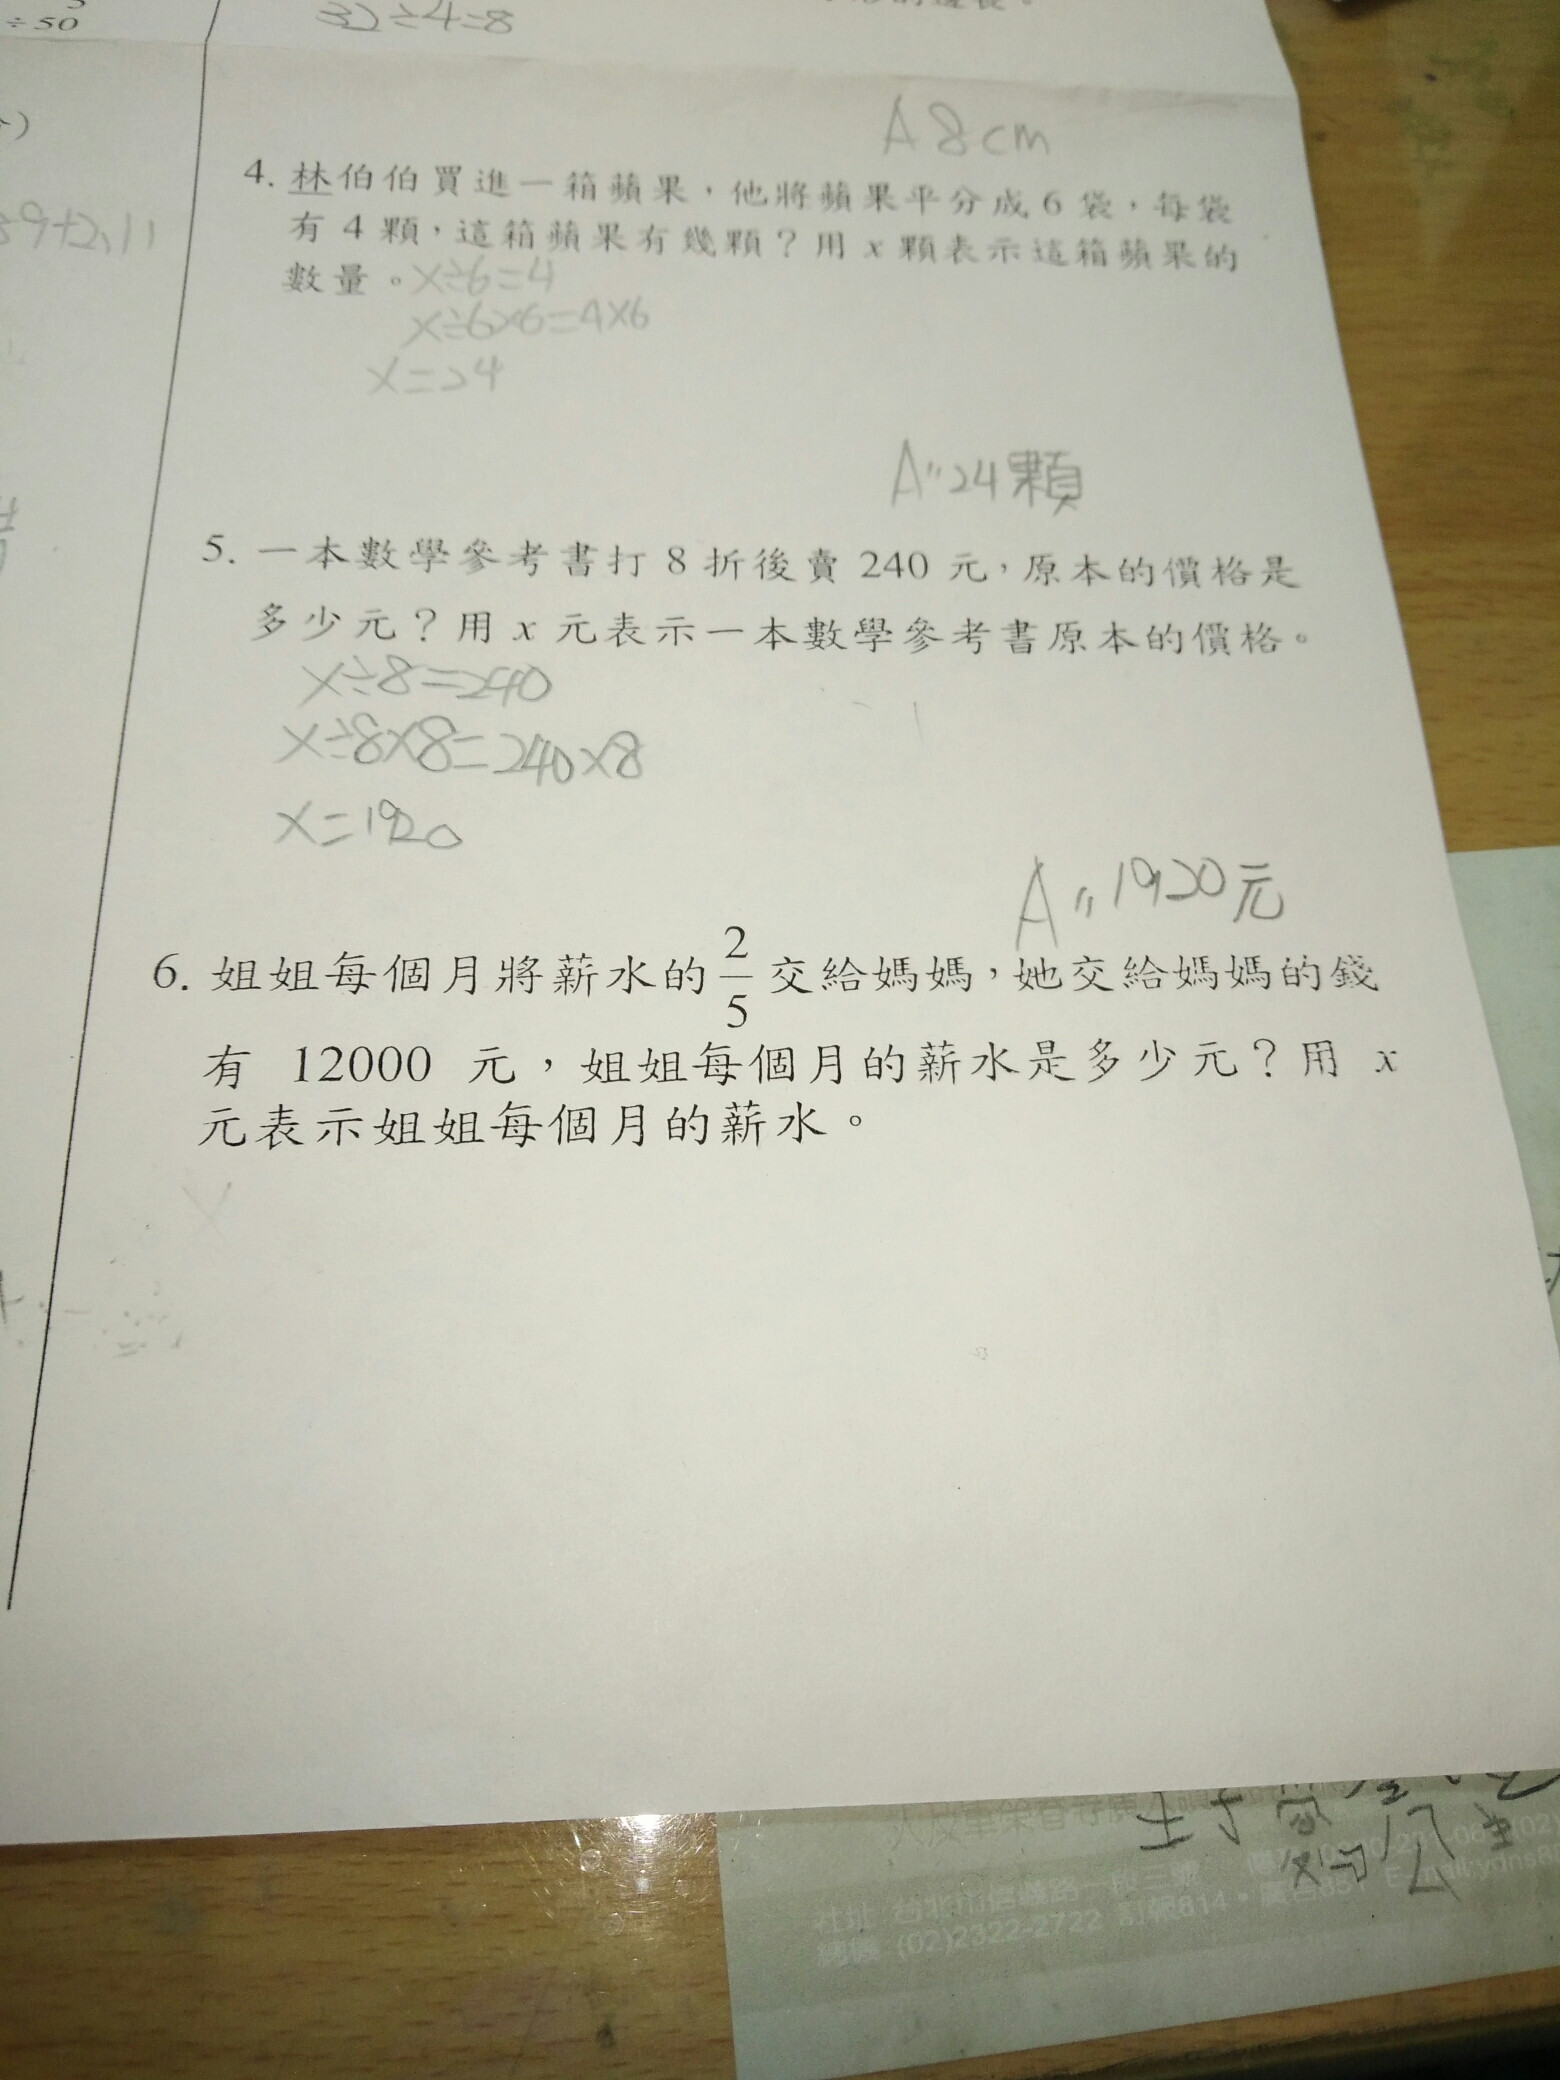 ÷50
32÷4=8
A 8cm
4. 林伯伯買進一箱蘋果，他將蘋果平分成 6 袋，每袋
有 4 顆，這箱蘋果有幾顆？用 x 顆表示這箱蘋果的
數量。x÷6=4
x÷6×6=4×6
x=24
A"24顆
5. 一本數學參考書打 8 折後賣 240 元，原本的價格是
多少元？用 x 元表示一本數學參考書原本的價格。
x÷8=240
x÷8×8=240×8
x=1920
A"1920元
6. 姐姐每個月將薪水的 2/5 交給媽媽，她交給媽媽的錢
有 12000 元，姐姐每個月的薪水是多少元？用 x
元表示姐姐每個月的薪水。
(02)2322-2722